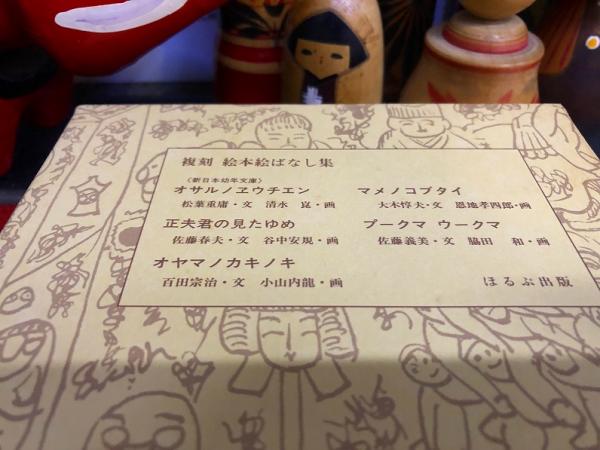 複刻 絵本絵ばなし集
〈新日本幼年文庫〉
オサルノヱウチエン
松葉重庸・文 清水 崑・画
正夫君の見たゆめ
佐藤春夫・文 谷中安規・画
オヤマノカキノキ
百田宗治・文 小山内龍・画
マメノコブタイ
大木惇夫・文 恩地孝四郎・画
プークマ ウークマ
佐藤義美・文 脇田 和・画
ほるぷ出版